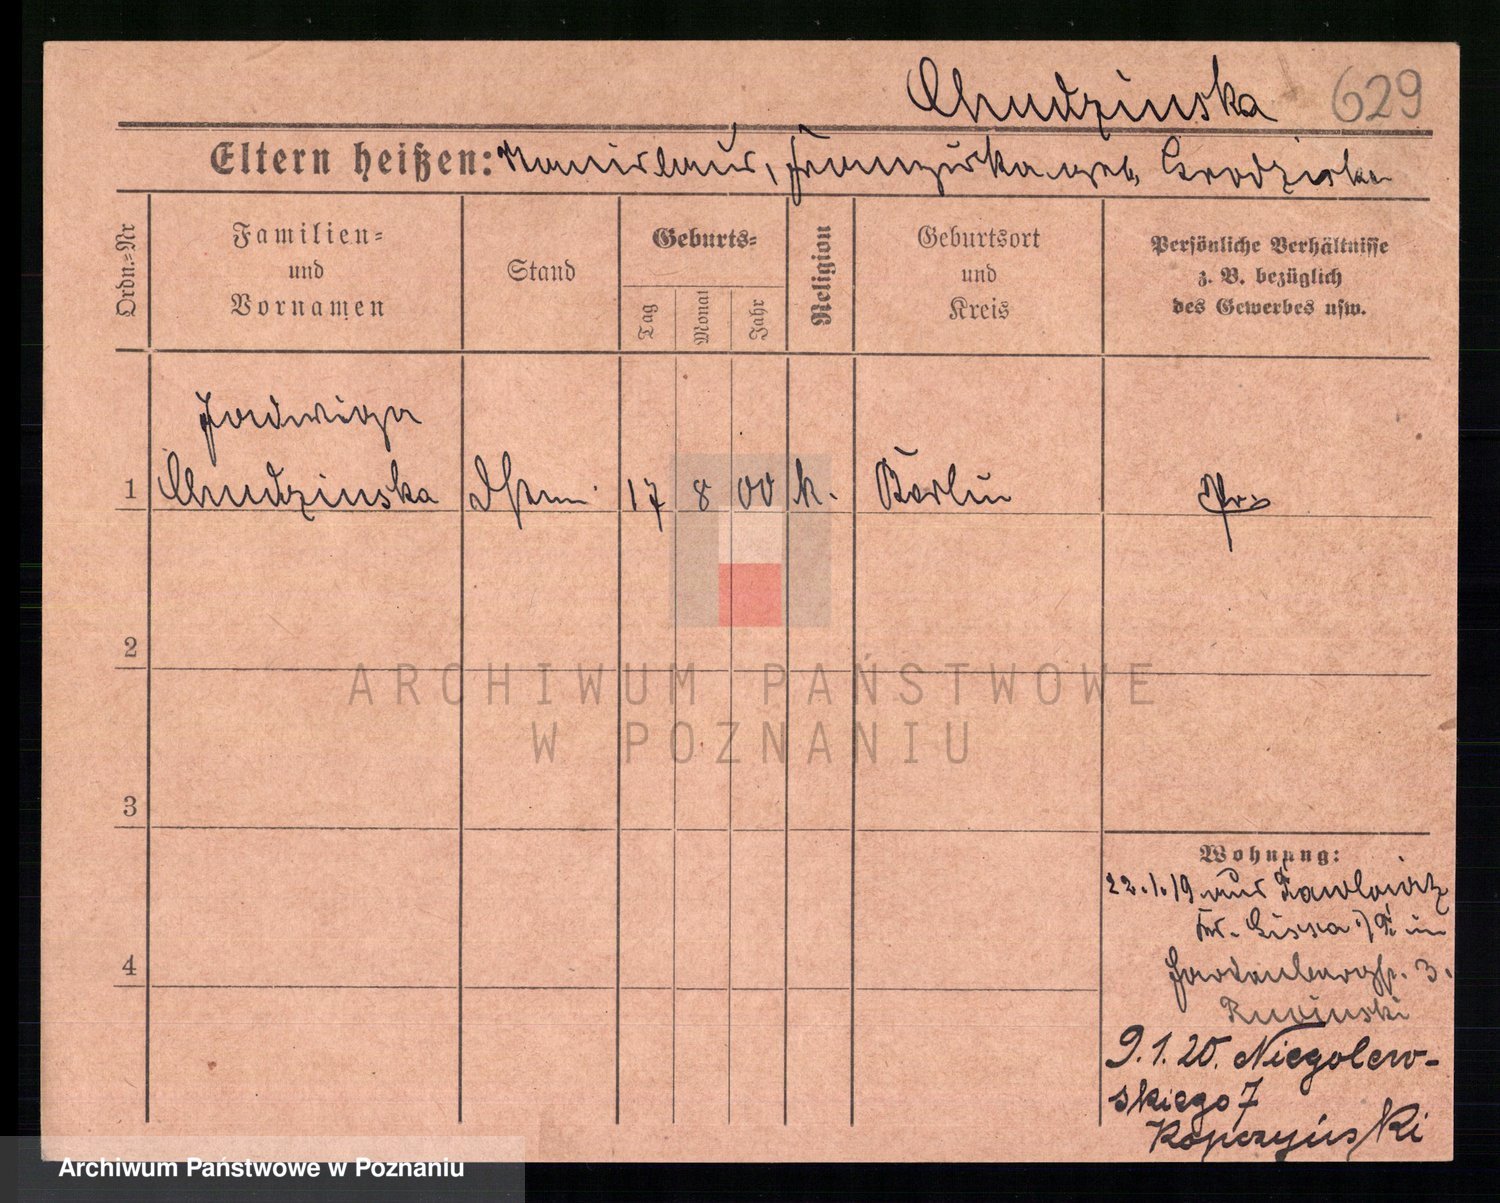 Chudzinska 629
Eltern heißen: Stanislaus, Franziska geb. Grodziska
Ordn.=Nr
Familien=
und
Vornamen
Stand
Geburts=
Tag
Monat
Jahr
Religion
Geburtsort
und
Kreis
Persönliche Verhältnisse
z. B. bezüglich
des Gewerbes usw.
Jadwiga
1 Chudzinska 17 8 00 k. Berlin Pr.
2
3
4
Wohnung:
22.1.19 aus
Kr. Lissa
3.
9.1.20. Niegolew-
skiego 7
Kopczyński
ARCHIWUM PAŃSTWOWE
W POZNANIU
Archiwum Państwowe w Poznaniu